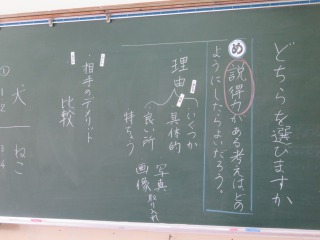 どちらを選びますか
め
説得力がある考えは、どの
ようにしたらよいだろう。
理由
いくつか
具体的
良い所
持ちつ
写真
画像
取り入れ
・相手のデメリット
比較
①
1
2
犬
3
4
ねこ